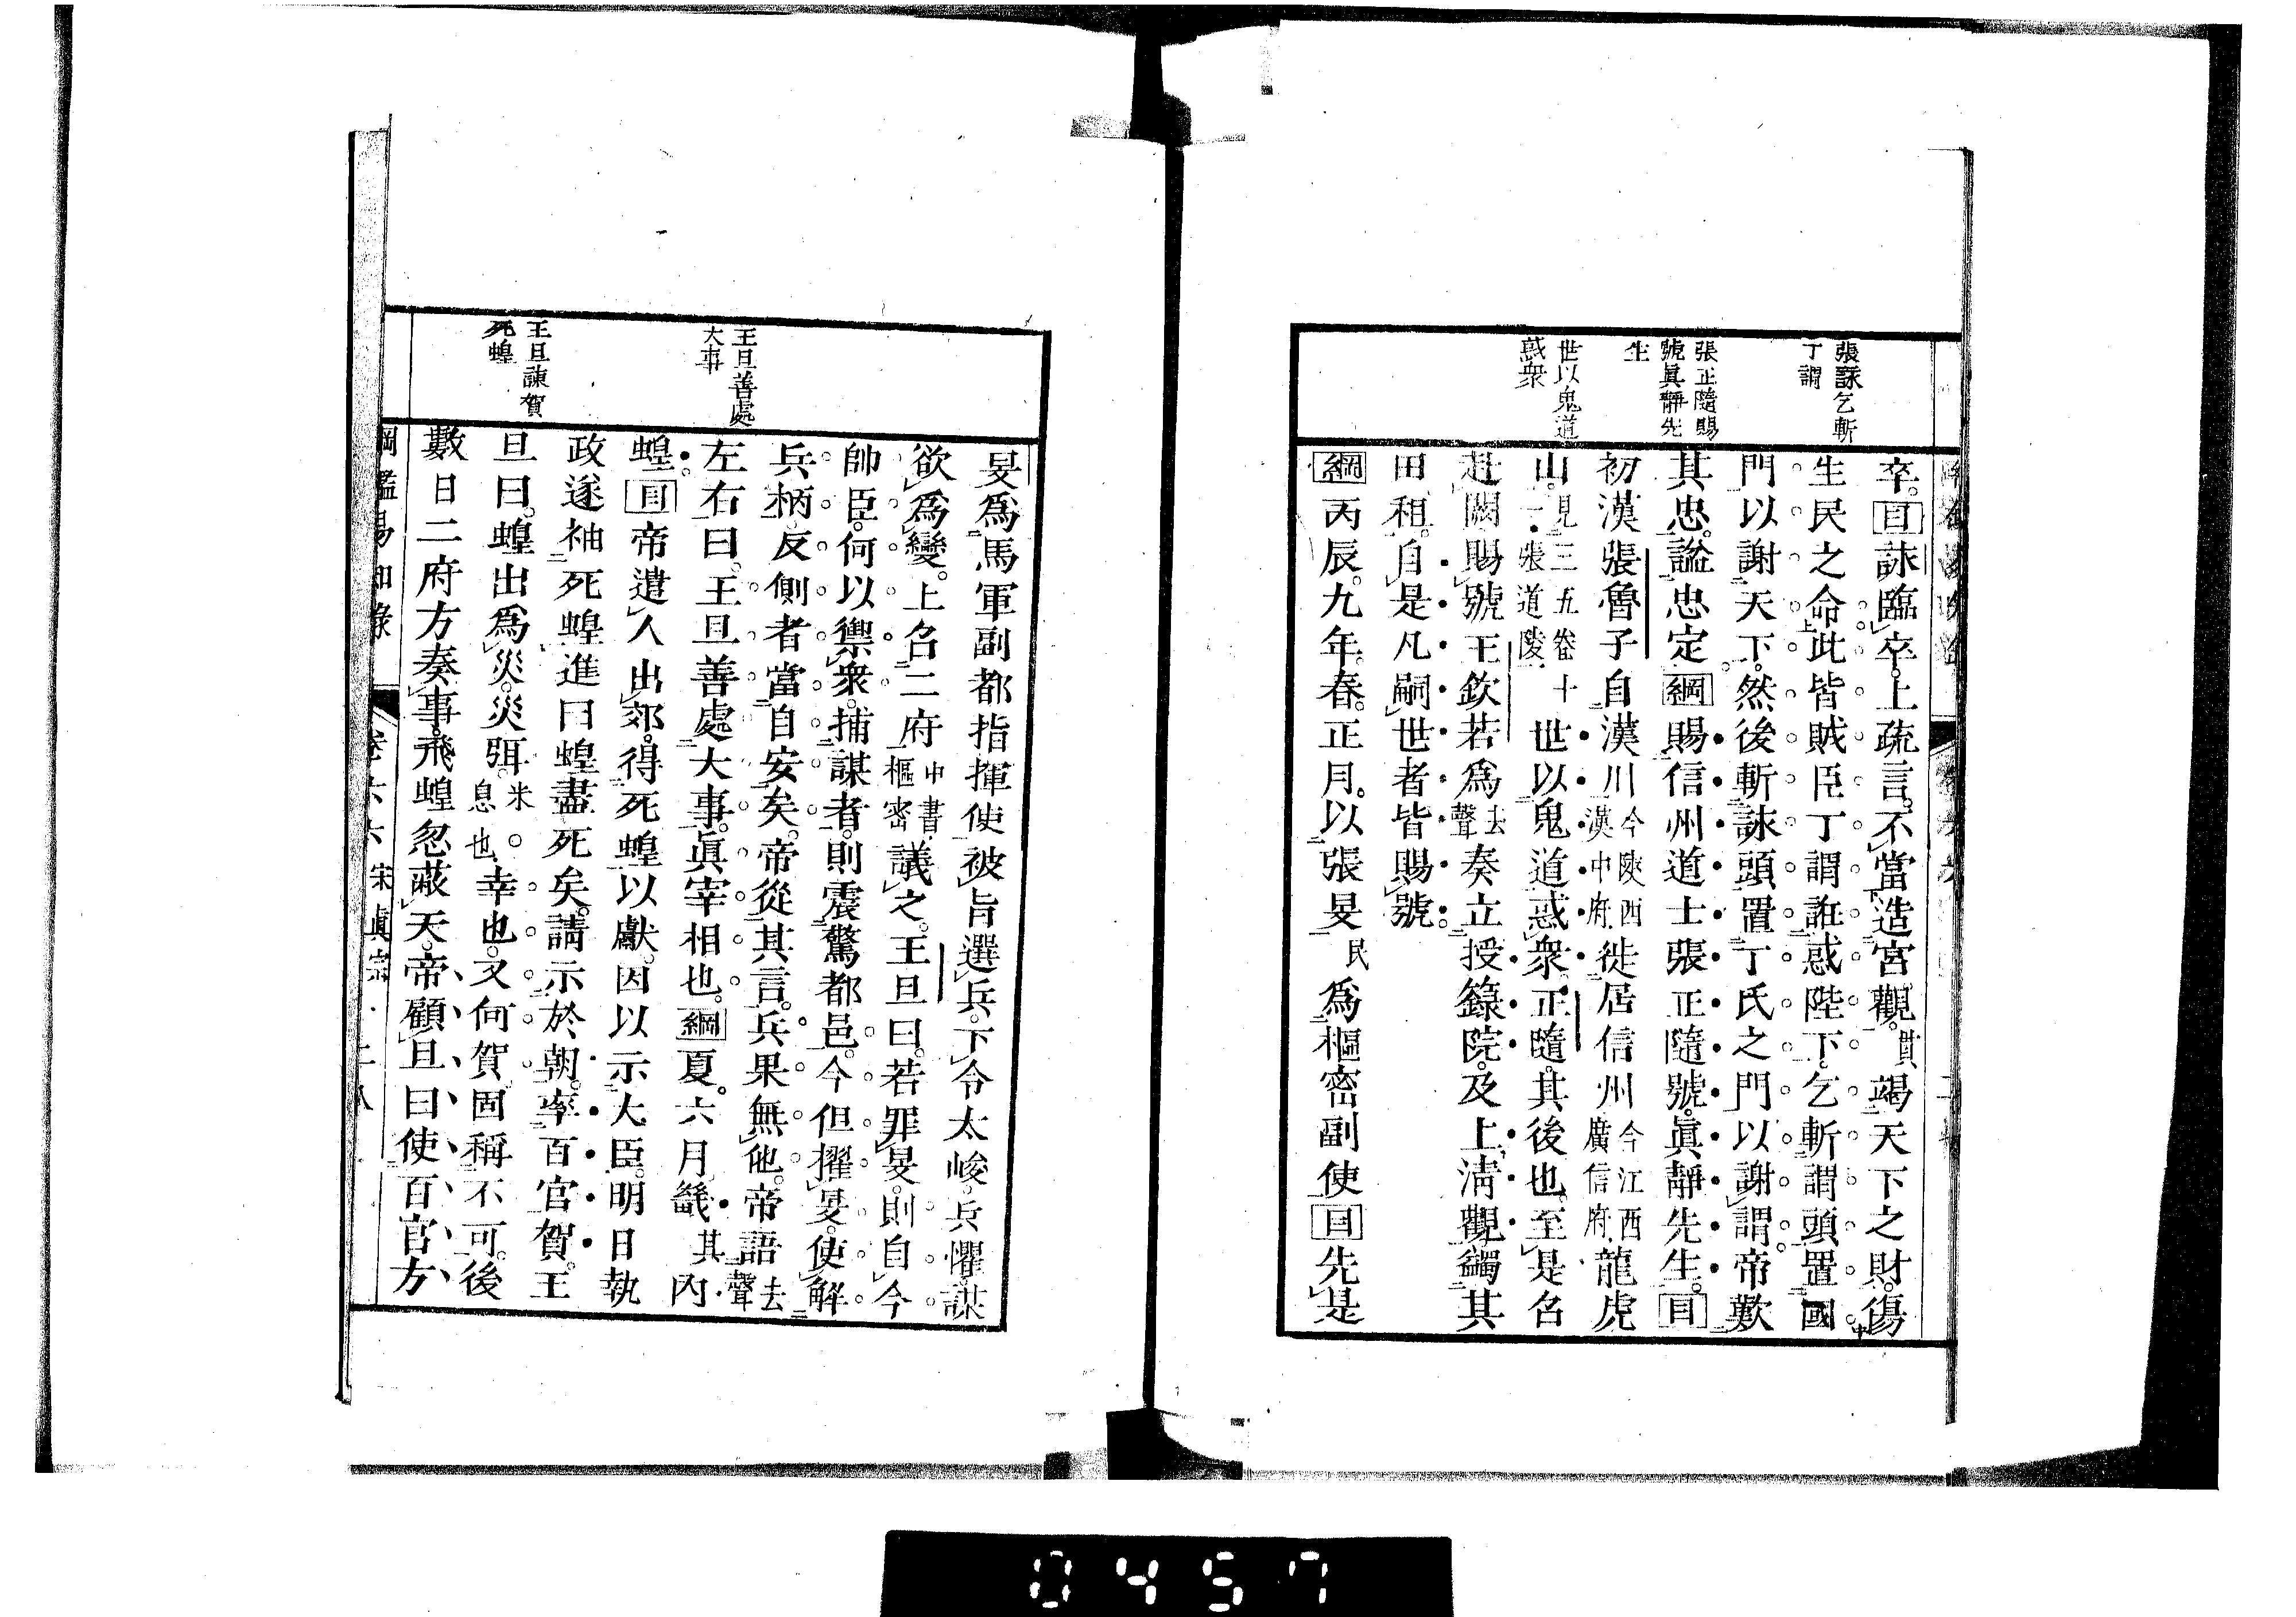 張詠乞斬
丁謂
張正隨賜
號眞靜先
生
世以鬼道
惑衆
卒。目詠臨卒。上疏言。不當造宮觀。貫竭天下之財。傷
生民之命。此皆賊臣丁謂誑惑陛下。乞斬謂頭置國
門以謝天下。然後斬詠頭置丁氏之門以謝謂。帝歎
其忠。諡忠定綱賜信州道士張正隨號。眞靜先生。目
初漢張魯子自漢川今陝西漢中府徙居信州今江西廣信府龍虎
山。見三五卷十一張道陵世以鬼道惑衆。正隨。其後也。至是召
赴闕。賜號。王欽若爲去聲奏立授籙院。及上淸觀。蠲其
田租。自是凡嗣世者皆賜號。
綱丙辰。九年。春。正月。以張旻民爲樞密副使目先是
王旦善處
大事
王旦諫賀
死蝗
旻爲馬軍副都指揮使被旨選兵。下令太峻。兵懼謀
欲爲變。上召二府中書樞密議之。王旦曰。若罪旻。則自今
帥臣。何以禦衆。捕謀者。則震驚都邑。今但擢旻。使解
兵柄。反側者當自安矣。帝從其言。兵果無他。帝語去聲
左右曰。王旦善處大事。眞宰相也。綱夏。六月畿其內
蝗。目帝遣人出郊。得死蝗以獻。因以示大臣。明日執
政遂袖死蝗進曰蝗盡死矣。請示於朝。率百官賀。王
旦曰。蝗出爲災。災弭。米息也幸也。又何賀固稱不可。後
數日二府方奏事。飛蝗忽蔽天。帝顧旦曰使百官方
綱鑑易知錄 卷六六 宋眞宗
0457